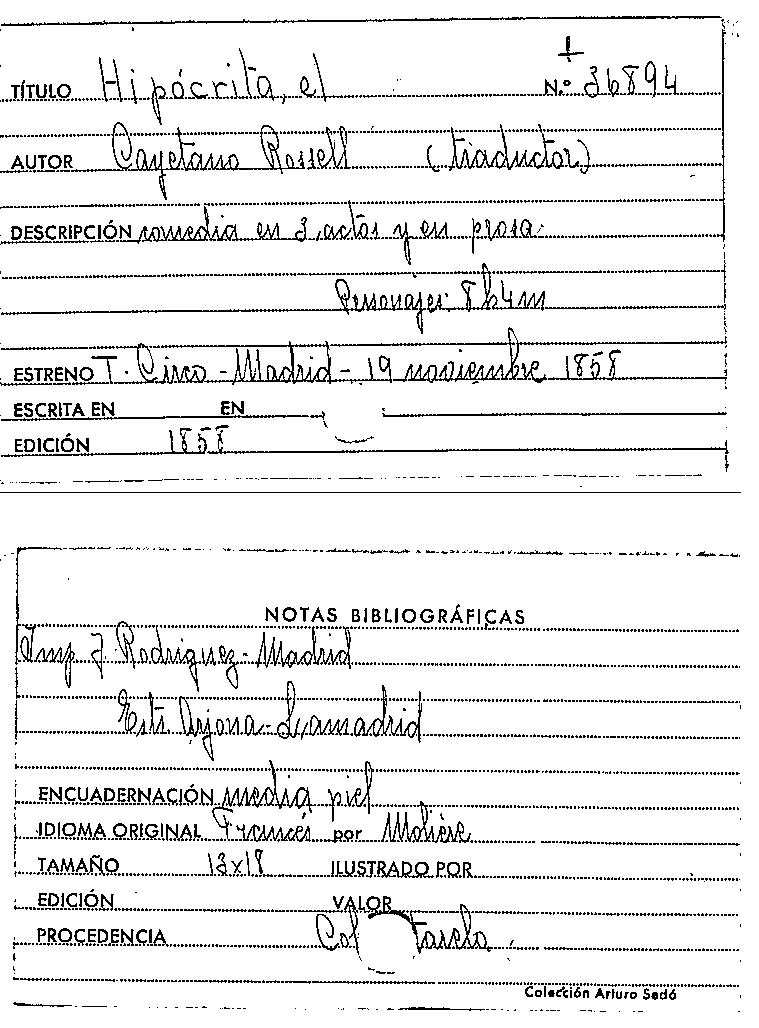 TÍTULO Hipócrita, el N.º 36894
AUTOR Cayetano Rosell (traductor)
DESCRIPCIÓN comedia en 3 actos y en prosa.
Personajes: 8h4m
ESTRENO T. Circo - Madrid - 19 noviembre 1858
ESCRITA EN EN
EDICIÓN 1858
NOTAS BIBLIOGRÁFICAS
Imp J. Rodriguez - Madrid
Estr Arjona - Lamadrid
ENCUADERNACIÓN media piel
IDIOMA ORIGINAL Francés por Molière
TAMAÑO 13x18 ILUSTRADO POR
EDICIÓN VALOR
PROCEDENCIA Col
Colección Arturo Sedó